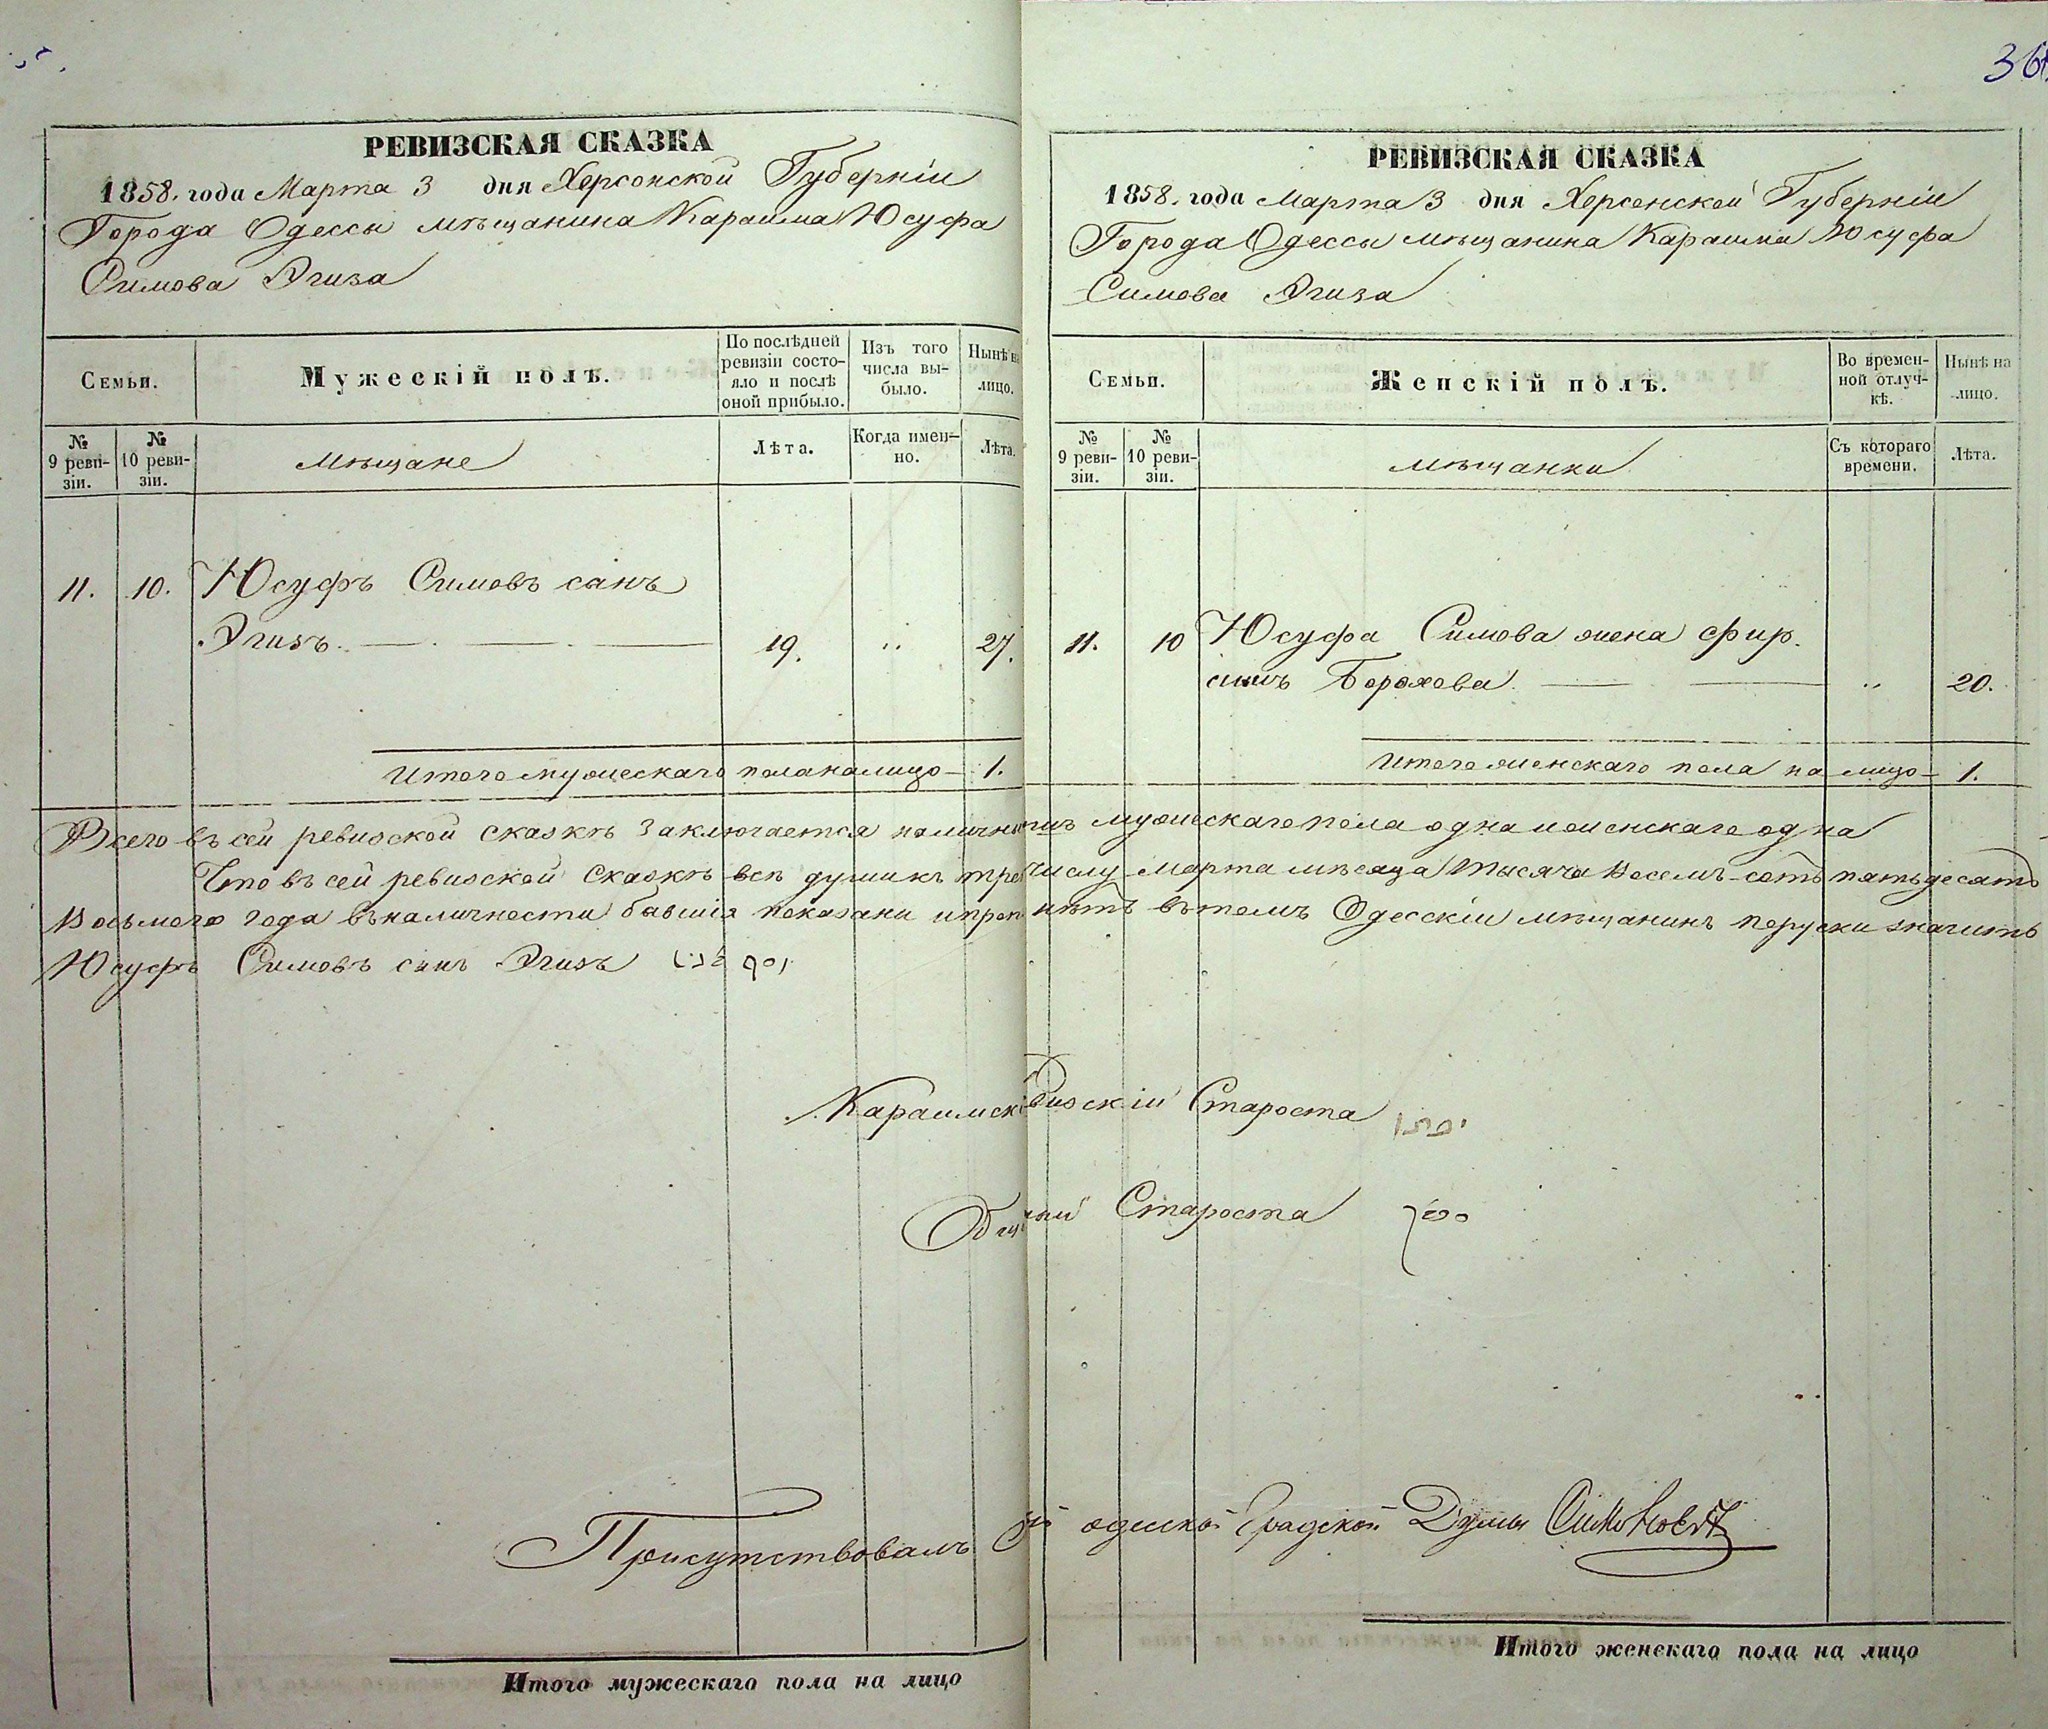 36
РЕВИЗСКАЯ СКАЗКА
1858. года Марта 3 дня Херсонской Губерніи
Города Одессы мѣщанина Караима Юсуфа
Симова Эгиза
Семьи.
Мужескій полъ.
По послѣдней ревизіи состояло и послѣ оной прибыло.
Изъ того числа выбыло.
Нынѣ на лицо.
№ 9 ревизіи.
№ 10 ревизіи.
Мѣщане
Лѣта.
Когда именно.
Лѣта.
11. 10. Юсуфъ Симовъ сынъ
Эгизъ. 19. " 27.
Итого мужескаго пола на лицо 1.
РЕВИЗСКАЯ СКАЗКА
1858. года Марта 3 дня Херсонской Губерніи
Города Одессы мѣщанина Караима Юсуфа
Симова Эгиза
Семьи.
Женскій полъ.
Во временной отлучкѣ.
Нынѣ на лицо.
№ 9 ревизіи.
№ 10 ревизіи.
мѣщанки
Съ котораго времени.
Лѣта.
11. 10 Юсуфа Симова жена Фир.
Борохова. " 20.
Итого женскаго пола на лицо 1.
Всего въ сей ревизской сказкѣ заключается мужескаго пола одна и женскаго одна
Что въ сей ревизской сказкѣ всѣ души къ числу Марта мѣсяца тысяча восемь сотъ пятьдесятъ
восьмого года въ наличности бывшія показаны и нѣтъ въ томъ Одесскій мѣщанинъ
Юсуфъ Симовъ сынъ Эгизъ יוסף
Староста
Староста
Присутствовалъ Одесской Градской Думы
Итого мужескаго пола на лицо
Итого женскаго пола на лицо